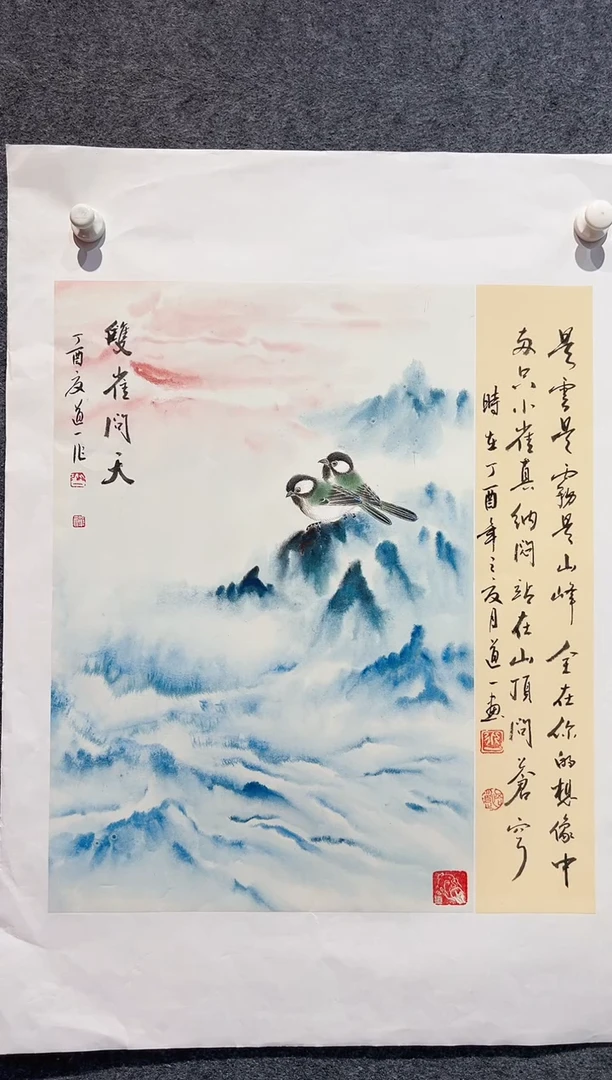 是雲是霧是山峰 全在你的想像中
两只小雀真納悶站在山頂問蒼穹
時在丁酉年之夏月道一畫
雙雀問天
丁酉夏道一作